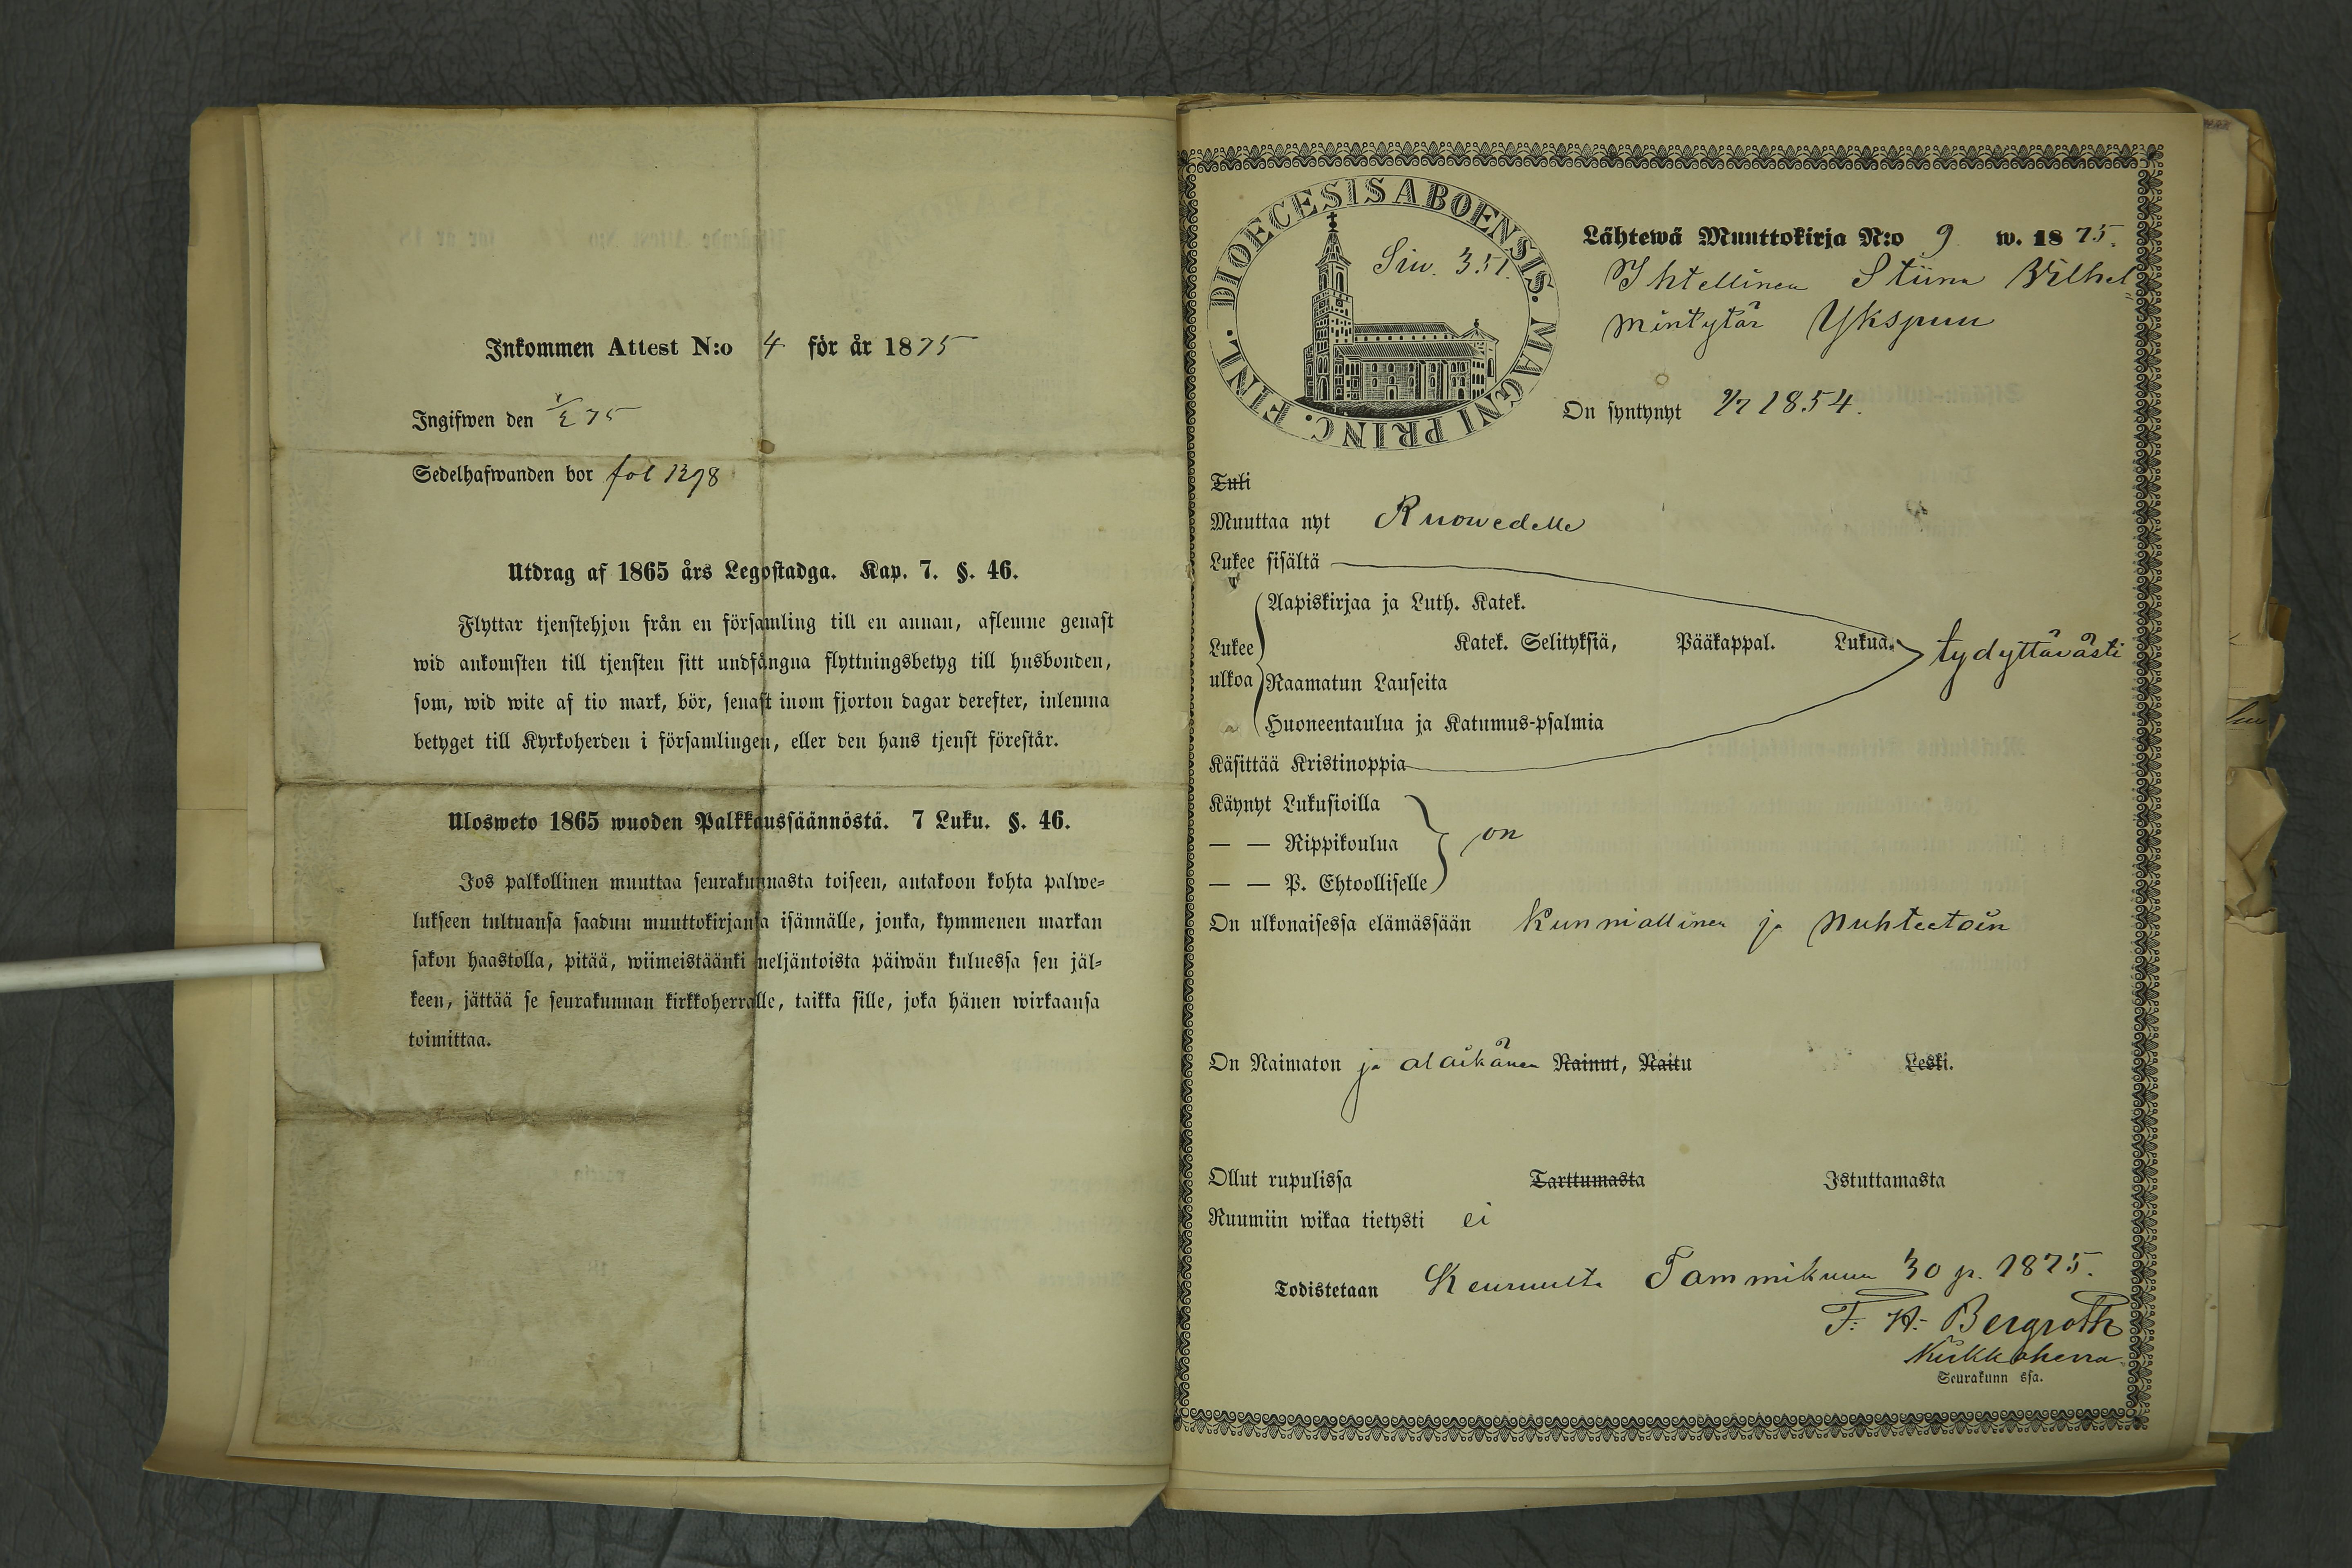 Inkommen Attest N:o 4 för år 1875
Ingifwen den 1/2 75
Sedelhafwanden bor fol 1298
Utdrag af 1865 års Legostadga. Kap. 7. §. 46.
Flyttar tjenstehjon från en församling till en annan, aflemne genast
wid ankomsten till tjensten sitt undfångna flyttningsbetyg till husbonden,
som, wid wite af tio mark, bör, senast inom fjorton dagar derefter, inlemna
betyget till Kyrkoherden i församlingen, eller den hans tjenst förestår.
Ulosweto 1865 wuoden Palkkaussäännöstä. 7 Luku. §. 46.
Jos palkollinen muuttaa seurakunnasta toiseen, antakoon kohta palwe-
lukseen tultuansa saadun muuttokirjansa isännälle, jonka, kymmenen markan
sakon haastolla, pitää, wiimeistäänki neljäntoista päiwän kuluessa sen jäl-
keen, jättää se seurakunnan kirkkoherralle, taikka sille, joka hänen wirkaansa
toimittaa.
DIOECESIS ABOENSIS. MAGNI PRINC. FINL.
Siw. 351.
Lähtewä Muuttokirja N:o 9 w. 1875.
Ihtellinen Stiina Vilhel
mintytär Ykspuu
On syntynyt 9/7 1854.
Tuli
Muuttaa nyt Ruowedelle
Lukee sisältä
Aapiskirjaa ja Luth. Katek.
Lukee ulkoa Katek. Selityksiä, Pääkappal. Lukua. tydyttävästi
Raamatun Lauseita
Huoneentaulua ja Katumus-psalmia
Käsittää Kristinoppia
Käynyt Lukusioilla
— — Rippikoulua on
— — P. Ehtoolliselle
On ulkonaisessa elämässään Kunniallinen ja Nuhteetoin
On Naimaton ja alaikänen Nainut, Naitu Leski.
Ollut rupulissa Tarttumasta Istuttamasta
Ruumiin wikaa tietysti ei
Todistetaan Keuruulta Tammikuun 30 p. 1875.
F. H. Bergroth
Kirkkoherra
Seurakunn ssa.